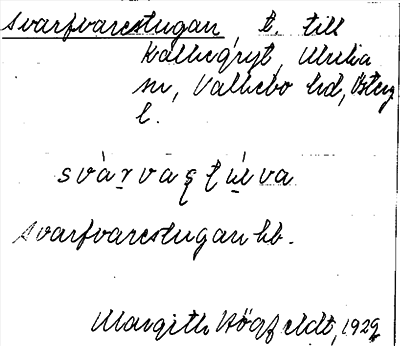 Svarfvarestugan, t. till
Kallhegryt, Ulrika
sn, Valkebo hd, Österg
l.
svàrvaștúva
Svarfvarestugan hb.
Margith Högfeldt, 1929